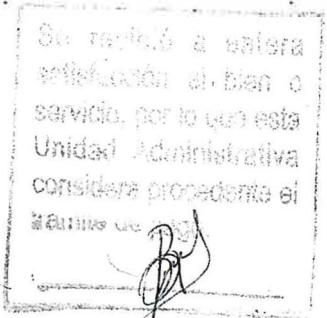 Se recibió a entera
satisfacción el bien o
servicio, por lo que esta
Unidad Administrativa
considera procedente el
trámite de